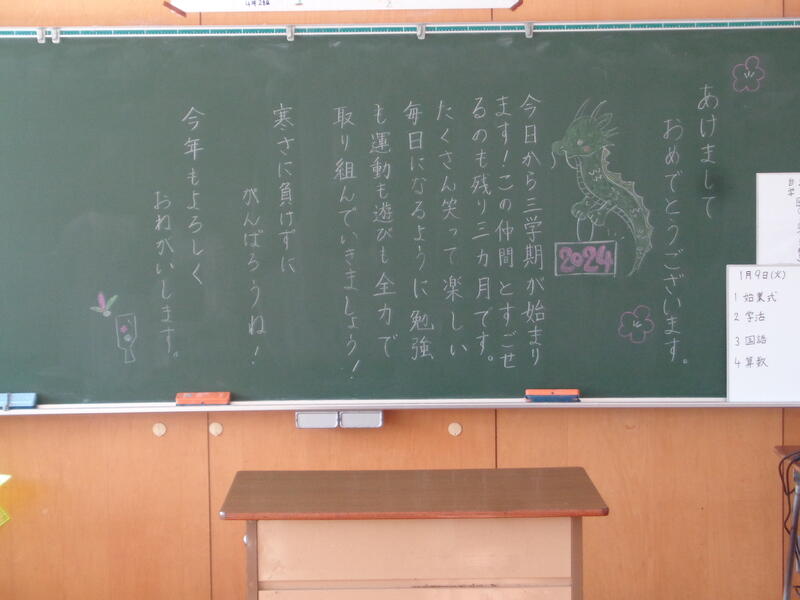 あけまして
おめでとうございます。
2024
今日から三学期が始まり
ます！この仲間とすごせ
るのも残り三カ月です。
たくさん笑って楽しい
毎日になるように勉強
も運動も遊びも全力で
取り組んでいきましょう！
寒さに負けずに
がんばろうね！
今年もよろしく
おねがいします。
1月9日(火)
1 始業式
2 学活
3 国語
4 算数